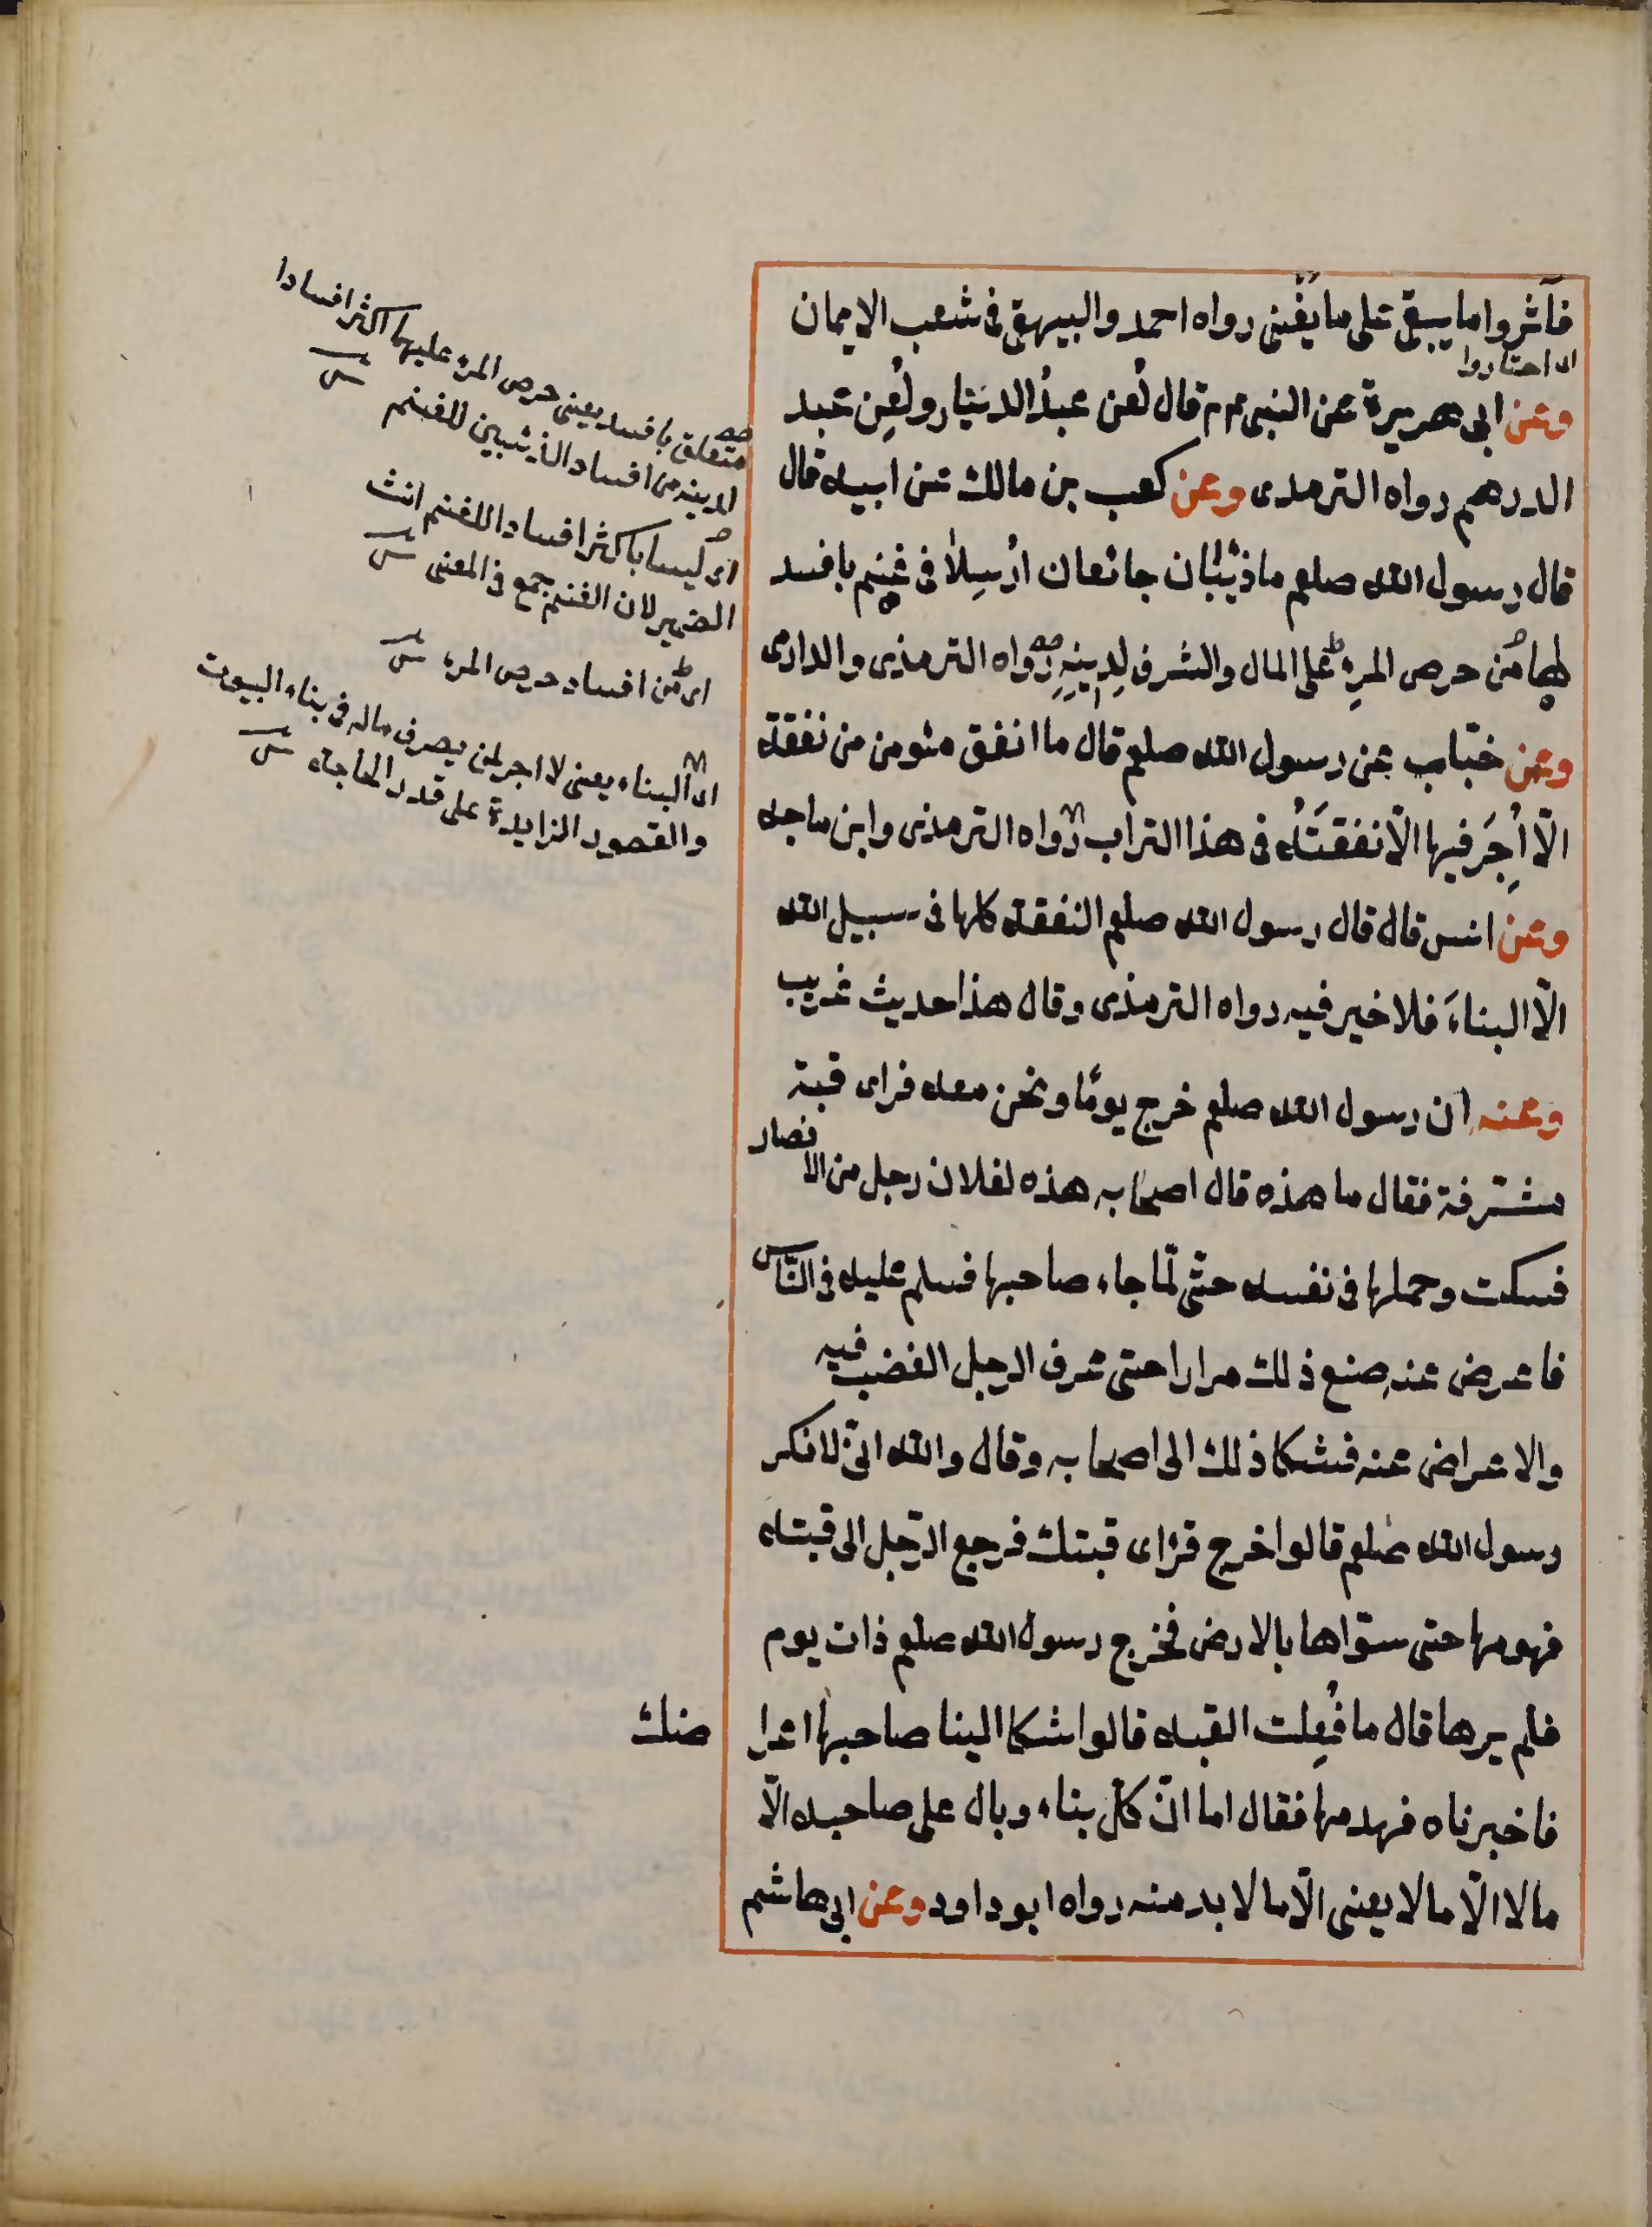 فآثروا ما يبقى على ما يفنى رواه احمد والبيهقى فى شعب الايمان
اى اختاروا
وعن ابى هريرة عن النبى عم قال لُعن عبدُ الدينار ولُعِن عبد
الدرهم رواه الترمذى وعن كعب بن مالك عن ابيه قال
قال رسول الله صلعم ما ذئبان جائعان ارُسِلاٰ فى غنم بافسد
لها من حرص المرءِ على المال والشرف لِدِينِهِ رواه الترمذى والدارمى
وعن خبّاب عن رسول الله صلعم قال ما انفق مئومن من نفقة
الّا اُجِرَ فيها الّا نفقتَهُ فى هذا التراب رواه الترمذى وابن ماجه
وعن انس قال قال رسول الله صلعم النفقة كلها فى سبيل الله
الّا البناءَ فلا خير فيه رواه الترمذى وقال هذا حديث غريب
وعنه ان رسول الله صلعم خرج يومًا ونحن معه فراى قبة
مشترفة فقال ما هذه قال اصحابه هذه لفلان رجل من الانصار
فسكت وحملها فى نفسه حتّى لمّا جاء صاحبها فسلم عليه فى النّاس
فاعرض عنه صنع ذلك مرارا حتى عرف الرجل الغضب فيه
والاعراض عنه فشكا ذلك الى اصحابه وقال والله انّى لانكر
رسول الله صلعم قالوا خرج فرٰاى قبتك فرجع الرّجل الى قبته
فهومها حتى سوّاها بالارض فخرج رسول الله صلعم ذات يوم
فلم يرها قال ما فُعِلت القبه قالوا شكا الينا صاحبها اعرا ضك
فاخبرناه فهدمها فقال اما انّ كلّ بناء وبال على صاحبه الّا
مالا الّا مالا يعنى الّا مالا بد منه رواه ابو داود وعن ابى هاشم
متعلق بافسد يعنى حرص المرء عليهما اكثر افسادا
لدينه من افساد الذئبين للغنم
اى ليسا باكثر افسادا للغنم انث
الضمير لان الغنم جمع فى المعنى
اى من افساد حرص المرء
اى البناء يعنى لا اجر لمن يصرف ماله فى بناء البيوت
والقصور الزايدة على قدر الحاجة